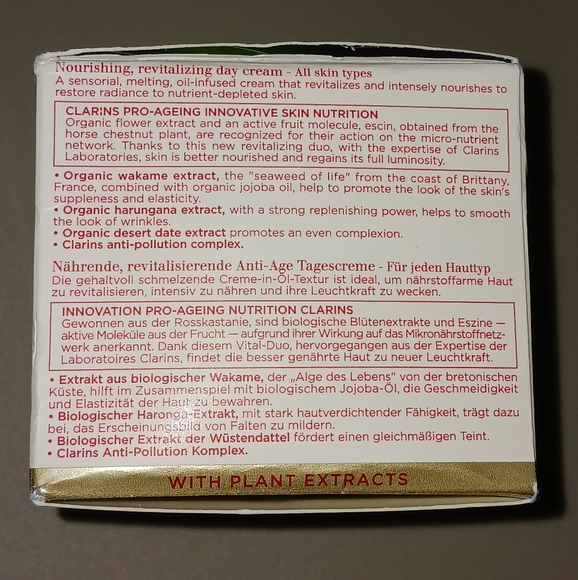 Nourishing, revitalizing day cream - All skin types
A sensorial, melting, oil-infused cream that revitalizes and intensely nourishes to
restore radiance to nutrient-depleted skin.
CLARINS PRO-AGEING INNOVATIVE SKIN NUTRITION
Organic flower extract and an active fruit molecule, escin, obtained from the
horse chestnut plant, are recognized for their action on the micro-nutrient
network. Thanks to this new revitalizing duo, with the expertise of Clarins
Laboratories, skin is better nourished and regains its full luminosity.
• Organic wakame extract, the "seaweed of life" from the coast of Brittany,
France, combined with organic jojoba oil, help to promote the look of the skin's
suppleness and elasticity.
• Organic harungana extract, with a strong replenishing power, helps to smooth
the look of wrinkles.
• Organic desert date extract promotes an even complexion.
• Clarins anti-pollution complex.
Nährende, revitalisierende Anti-Age Tagescreme - Für jeden Hauttyp
Die gehaltvoll schmelzende Creme-in-Öl-Textur ist ideal, um nährstoffarme Haut
zu revitalisieren, intensiv zu nähren und ihre Leuchtkraft zu wecken.
INNOVATION PRO-AGEING NUTRITION CLARINS
Gewonnen aus der Rosskastanie, sind biologische Blütenextrakte und Eszine —
aktive Moleküle aus der Frucht — aufgrund ihrer Wirkung auf das Mikronährstoffnetz-
werk anerkannt. Dank diesem Vital-Duo, hervorgegangen aus der Expertise der
Laboratoires Clarins, findet die besser genährte Haut zu neuer Leuchtkraft.
• Extrakt aus biologischer Wakame, der „Alge des Lebens" von der bretonischen
Küste, hilft im Zusammenspiel mit biologischem Jojoba-Öl, die Geschmeidigkeit
und Elastizität der Haut zu bewahren.
• Biologischer Haronga-Extrakt, mit stark hautverdichtender Fähigkeit, trägt dazu
bei, das Erscheinungsbild von Falten zu mildern.
• Biologischer Extrakt der Wüstendattel fördert einen gleichmäßigen Teint.
• Clarins Anti-Pollution Komplex.
WITH PLANT EXTRACTS